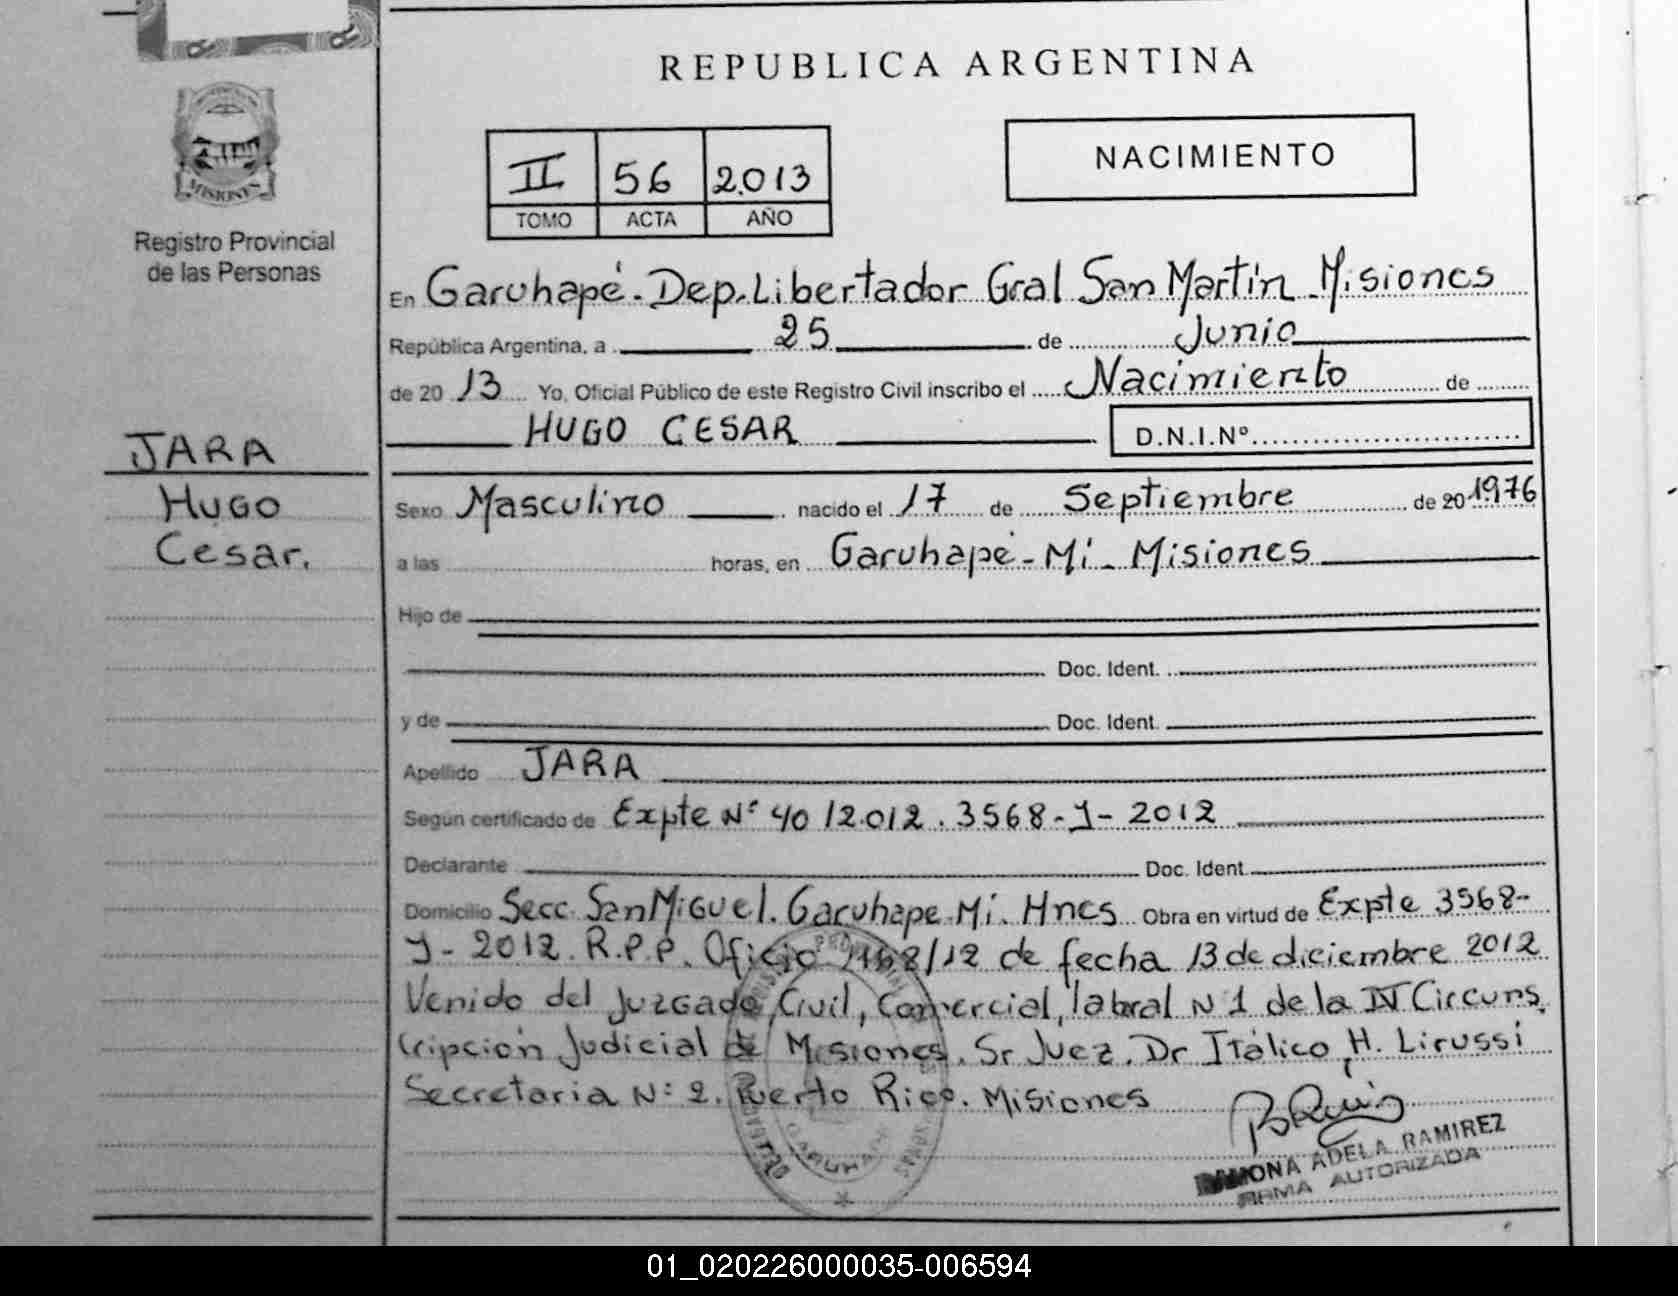 REPUBLICA ARGENTINA
NACIMIENTO
II 56 2.013
TOMO ACTA AÑO
MISIONES
Registro Provincial
de las Personas
JARA
Hugo
Cesar.
En Garuhapé. Dep. Libertador Gral San Martín Misiones
República Argentina, a 25 de Junio
de 20 13 Yo, Oficial Público de este Registro Civil inscribo el Nacimiento de
HUGO CESAR D.N.I.Nº
Sexo Masculino nacido el 17 de Septiembre de 20 1976
a las horas, en Garuhape - Mí - Misiones
Hijo de
Doc. Ident.
y de Doc. Ident.
Apellido JARA
Según certificado de Expte Nº 40/2.012. 3568-J-2012
Declarante Doc. Ident.
Domicilio Secc. San Miguel. Garuhape Mí. Mnes Obra en virtud de Expte 3568-
J-2012. R.P.P. Oficio /12 de fecha 13 de diciembre 2012
Venido del Juzgado, Civil, Comercial, labral N 1 de la IV Circuns
cripcion Judicial de Misiones. Sr Juez. Dr Itálico, H. Lirussi
Secretaria Nº 2. Puerto Rico. Misiones
RAMONA ADELA RAMIREZ
FIRMA AUTORIZADA
GARUHAPE
01_020226000035-006594